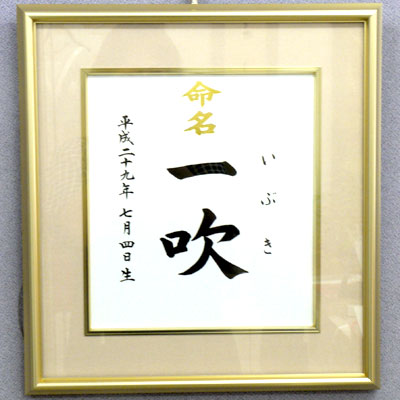 命名
いぶき
一吹
平成二十九年 七月四日生